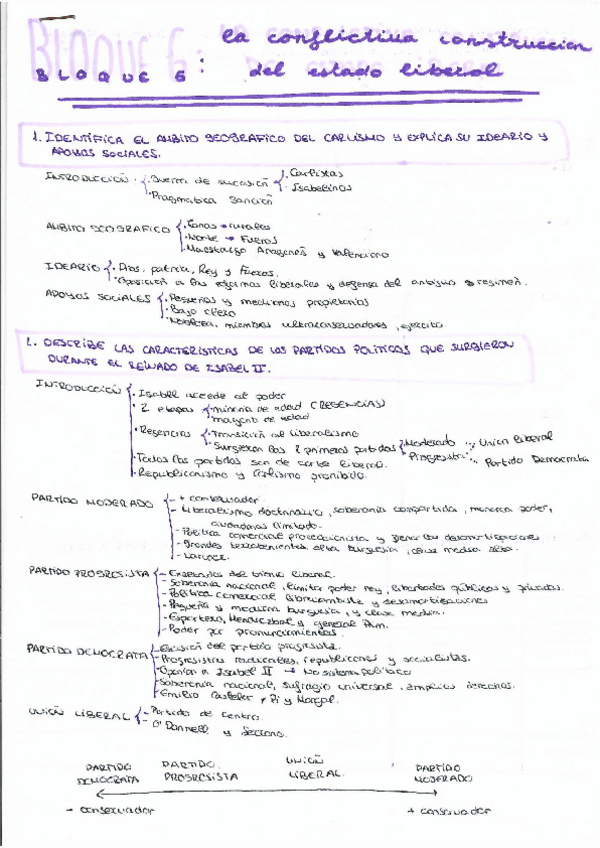 BLOQUE 6: la conflictiva construccion
del estado liberal
1. IDENTIFICA EL AMBITO GEOGRAFICO DEL CARLISMO Y EXPLICA SU IDEARIO Y
APOYOS SOCIALES.
INTRODUCCIÓN · Guerra de sucesión · Carlistas
· Isabelinos
· Pragmatica Sanción
AMBITO GEOGRAFICO · Zonas → rurales
· Norte → Fueros
· Maestrazgo Aragonés y Valenciano
IDEARIO · Dios, patria, Rey y Fueros.
· Oposición a las reformas liberales y defensa del antiguo regimen.
APOYOS SOCIALES · Pequeños y medianos propietarios
· Bajo clero
· Nobleza, miembros ultraconservadores, ejercito
2. DESCRIBE LAS CARACTERISTICAS DE LOS PARTIDOS POLITICOS QUE SURGIERON
DURANTE EL REINADO DE ISABEL II.
INTRODUCCIÓN · Isabel accede al poder
· 2 etapas · minoria de edad (REGENCIAS)
· mayoria de edad
· Regencias · Transición al liberalismo
· Surgieron los 2 primeros partidos · Moderado · Union liberal
Progresista · Partido Democrata
· Todos los partidos son de corte liberal.
· Republicanismo y carlismo prohibido.
PARTIDO MODERADO - + conservador
- Liberalismo doctrinario, soberania compartida, monarca poder,
ciudadanos limitado.
- Politica comercial proteccionista y
- Grandes terratenientes, alta burguesia, clase media alta.
- Narvaez.
PARTIDO PROGRESISTA - Exaltados del trienio liberal.
- Soberania nacional, limitar poder rey, libertades públicas y privadas.
- Politica comercial librecambista y desamortizaciones
- Pequeña y mediana burguesia, y clase media.
- Espartero, Mendizabal y general Prim.
- Poder por pronunciamientos.
PARTIDO DEMOCRATA - Escisión del partido progresista.
- Progresistas radicales, republicanos y socialistas.
- Oposición a Isabel II → No sistema político
- Soberania nacional, sufragio universal, amplios derechos.
- Emilio Castelar y Pi y Margal.
UNIÓN LIBERAL - Partido de centro.
- O'Donnell y Serrano.
PARTIDO DEMOCRATA PARTIDO PROGRESISTA UNIÓN LIBERAL PARTIDO MODERADO
- conservador + conservador